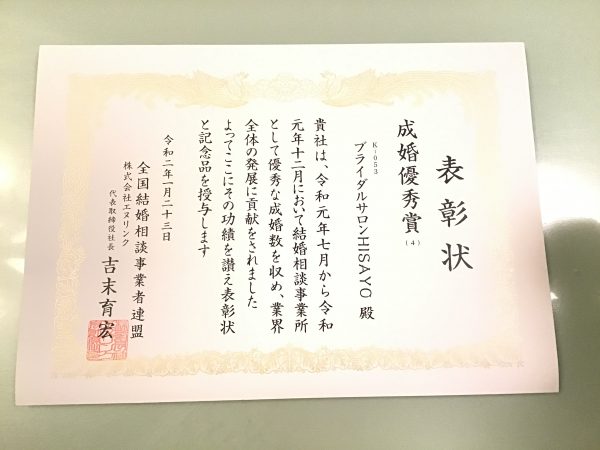 表彰状
成婚優秀賞(4)
K-053
ブライダルサロンHISAYO 殿
貴社は、令和元年七月から令和
元年十二月において結婚相談事業所
として優秀な成婚数を収め、業界
全体の発展に貢献をされました
よってここにその功績を讃え表彰状
と記念品を授与します
令和二年一月二十三日
全国結婚相談事業者連盟
株式会社エヌリンク
代表取締役社長 吉末育宏